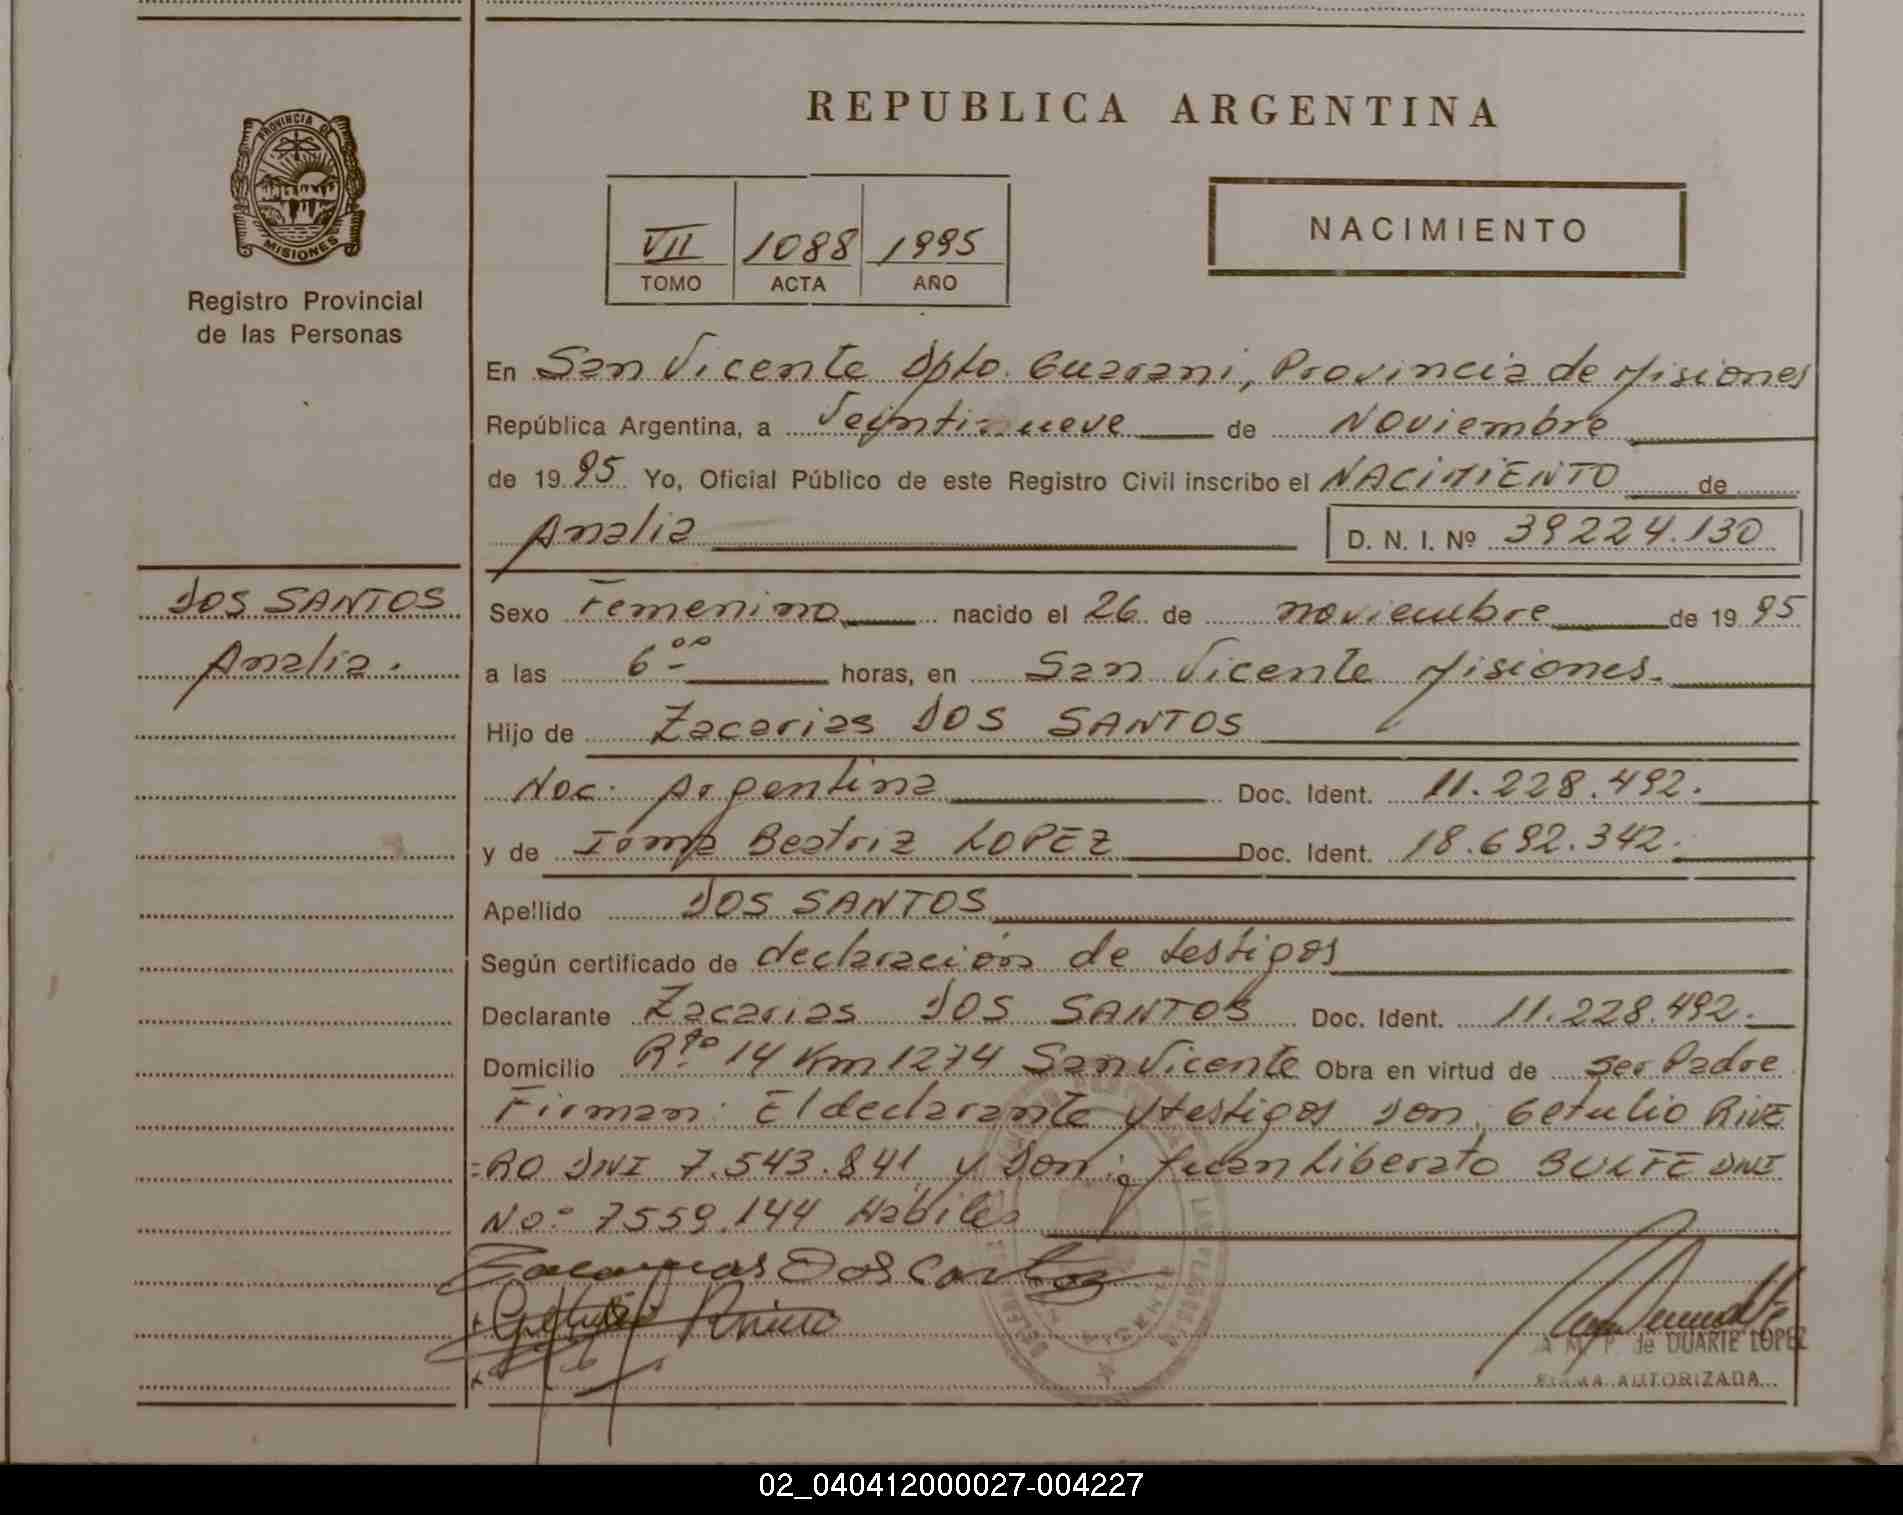 REPUBLICA ARGENTINA
PROVINCIA DE
MISIONES
Registro Provincial
de las Personas
VII 1088 1995
TOMO ACTA AÑO
NACIMIENTO
En San Vicente Dpto. Guarani, Provincia de Misiones
República Argentina, a Veintinueve de Noviembre
de 1995 Yo, Oficial Público de este Registro Civil inscribo el NACIMIENTO de
Analia D. N. I. Nº 39224.130
DOS SANTOS
Analia.
Sexo Femenino nacido el 26 de noviembre de 1995
a las 6ºº horas, en San Vicente Misiones.
Hijo de Zacarias DOS SANTOS
Nac: Argentina Doc. Ident. 11.228.492.
y de Beatriz LOPEZ Doc. Ident. 18.692.342.
Apellido DOS SANTOS
Según certificado de declaración de testigos
Declarante Zacarias DOS SANTOS Doc. Ident. 11.228.492.
Domicilio 14 Km 1274 San Vicente Obra en virtud de ser Padre
Firman: El declarante y testigos Don: Getulio RIVE
=RO DNI 7.543.841 y Don: Juan Liberato DNI
No: 7559.144 Habiles
A M. P. de DUARTE LOPEZ
FIRMA AUTORIZADA
02_040412000027-004227